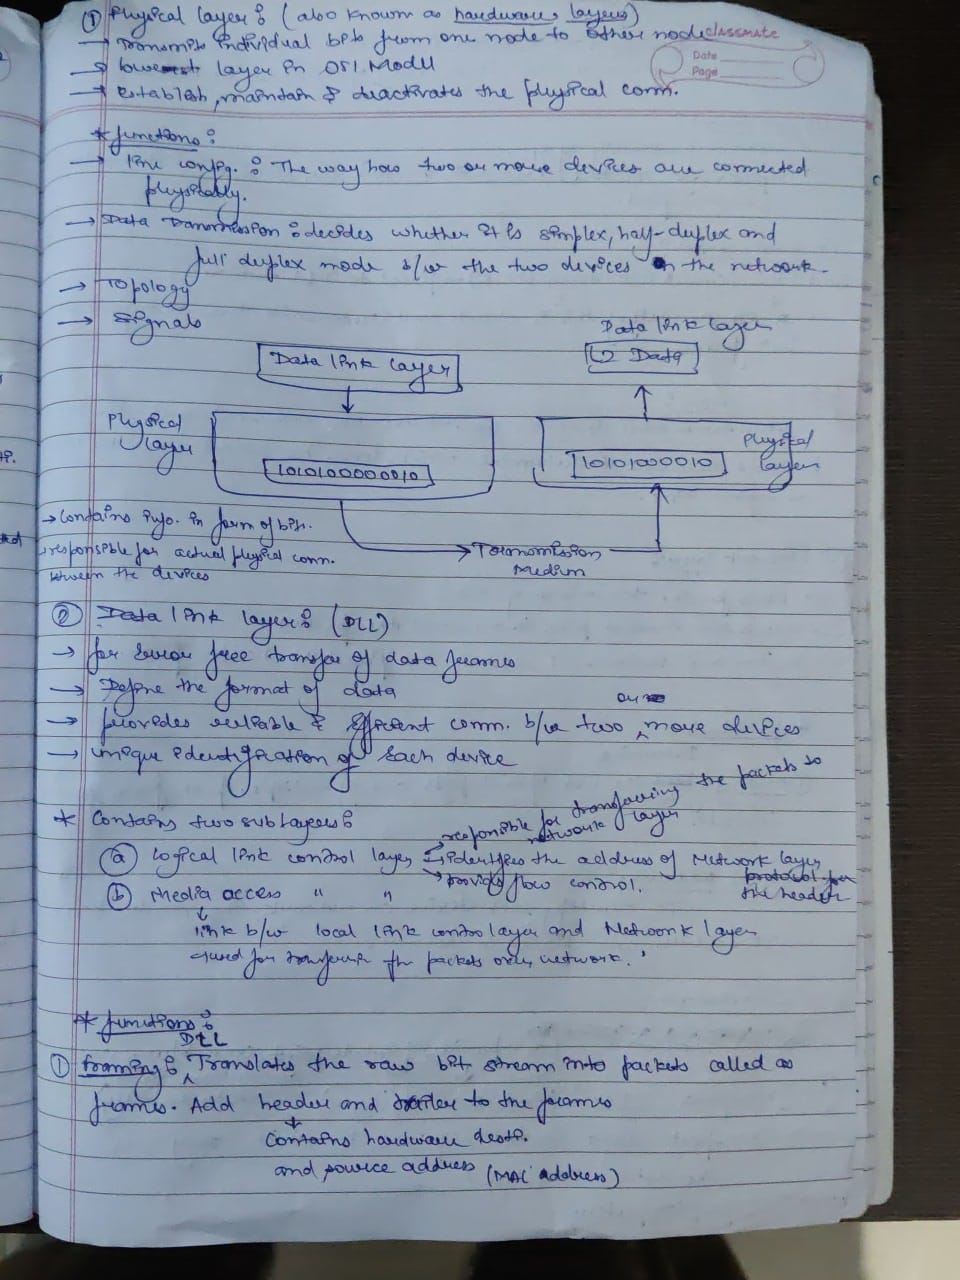 ① Physical layer : (also known as hardware layers)
classmate
Date
Page
→ Transmits individual bits from one node to other node
→ lowest layer in OSI Model
→ Establish, maintain & deactivates the physical conn.
* functions :
→ line config. : The way how two or more devices are connected
physically.
→ Data Transmission : decides whether it is simplex, half-duplex and
full duplex mode b/w the two devices on the network.
→ Topology
→ Signals
Data link layer
Data link layer
Data
Physical
layer
1010100000010
Physical
layer
10101000010
→ Contains info. in form of bits.
→ responsible for actual physical conn.
between the devices
Transmission
Medium
② Data link layer : (DLL)
→ for Error free transfer of data frames
→ Define the format of data
→ provides reliable & efficient comm. b/w two or more devices
→ unique identification of Each device
* Contains two sub layers :
→ responsible for transferring the packets to
network layer
ⓐ logical link control layer → identifies the address of Network layer
protocol for
the header
→ provides flow control.
ⓑ Media access " "
↓
link b/w local link control layer and Network layer
→ used for transferring the packets over network.
* functions :
① framing : DLL Translates the raw bit stream into packets called as
frames. Add header and trailer to the frames
↓
Contains hardware destn.
and source address (MAC address)